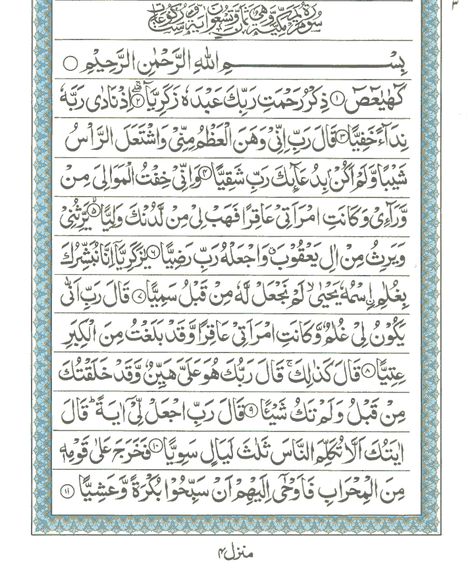 ۳
سورة مريم مكية وهي ثمان وتسعون آية وست ركوعات
بِسْمِ اللهِ الرَّحْمٰنِ الرَّحِيْمِ ○
كٓهٰيٰعٓصٓ ۝۱ ذِكْرُ رَحْمَتِ رَبِّكَ عَبْدَهٗ زَكَرِيَّا ۝۲ اِذْ نَادٰى رَبَّهٗ
نِدَآءً خَفِيًّا ۝۳ قَالَ رَبِّ اِنِّىْ وَهَنَ الْعَظْمُ مِنِّىْ وَاشْتَعَلَ الرَّاْسُ
شَيْبًا وَّلَمْ اَكُنْۢ بِدُعَآئِكَ رَبِّ شَقِيًّا ۝۴ وَاِنِّىْ خِفْتُ الْمَوَالِىَ مِنْ
وَّرَآءِىْ وَكَانَتِ امْرَاَتِىْ عَاقِرًا فَهَبْ لِىْ مِنْ لَّدُنْكَ وَلِيًّا ۝۵ يَّرِثُنِىْ
وَيَرِثُ مِنْ اٰلِ يَعْقُوْبَ وَاجْعَلْهُ رَبِّ رَضِيًّا ۝۶ يٰزَكَرِيَّآ اِنَّا نُبَشِّرُكَ
بِغُلٰمِ اِۨسْمُهٗ يَحْيٰى لَمْ نَجْعَلْ لَّهٗ مِنْ قَبْلُ سَمِيًّا ۝۷ قَالَ رَبِّ اَنّٰى
يَكُوْنُ لِىْ غُلٰمٌ وَّكَانَتِ امْرَاَتِىْ عَاقِرًا وَّقَدْ بَلَغْتُ مِنَ الْكِبَرِ
عِتِيًّا ۝۸ قَالَ كَذٰلِكَ ۚ قَالَ رَبُّكَ هُوَ عَلَىَّ هَيِّنٌ وَّقَدْ خَلَقْتُكَ
مِنْ قَبْلُ وَلَمْ تَكُ شَيْئًا ۝۹ قَالَ رَبِّ اجْعَلْ لِّىْ اٰيَةً ؕ قَالَ
اٰيَتُكَ اَلَّا تُكَلِّمَ النَّاسَ ثَلٰثَ لَيَالٍ سَوِيًّا ۝۱۰ فَخَرَجَ عَلٰى قَوْمِهٖ
مِنَ الْمِحْرَابِ فَاَوْحٰٓى اِلَيْهِمْ اَنْ سَبِّحُوْا بُكْرَةً وَّعَشِيًّا ۝۱۱
منزل۴